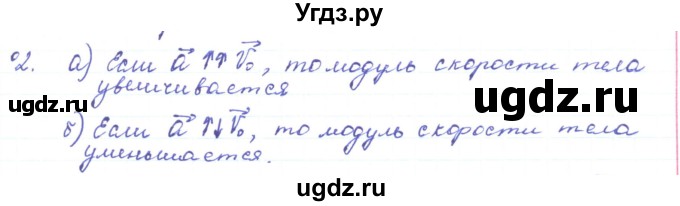 Угдз.ру
2. а) Если a⃗ ↑↑ v⃗₀, то модуль скорости тела
увеличивается
ugdz.ru ugdz.ru ugdz.ru
б) Если a⃗ ↑↓ v⃗₀, то модуль скорости тела
уменьшается.
ugdz.ru